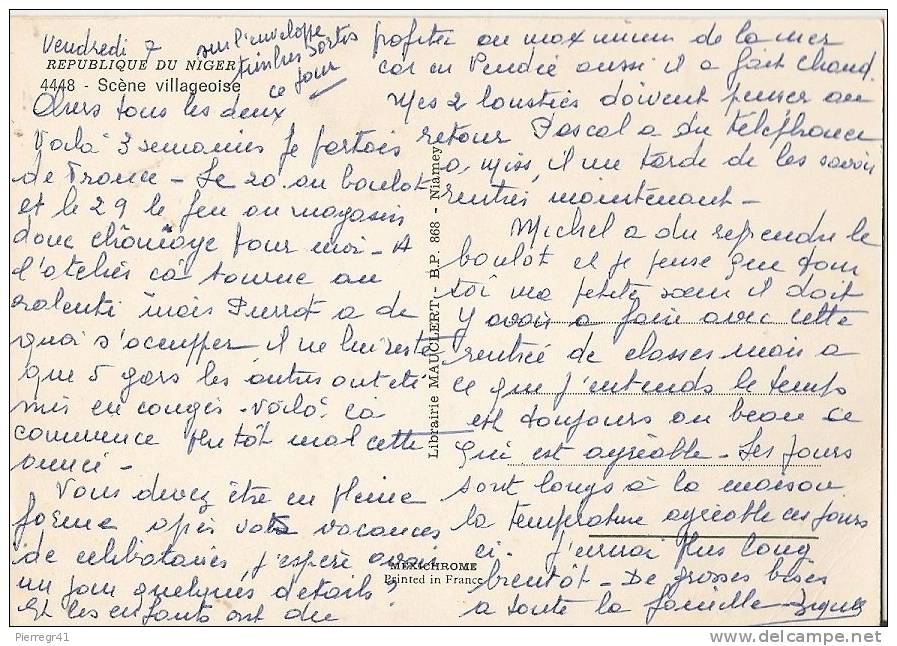 Vendredi 7
sur l'enveloppe
timbres sortis
ce jour
REPUBLIQUE DU NIGER
4448 - Scène villageoise
Chers tous les deux
Voilà 3 semaines je partais
de France - Le 20 au boulot
et le 29 le feu au magasin
donc chômage pour moi - A
l'atelier ça tourne au
ralenti mais Pierrot a de
quoi s'occuper il ne lui reste
que 5 gars les autres ont été
mis en congés - Voilà ça
commence plutôt mal cette
année -
Vous devez être en pleine
forme après vos vacances
de célibataires, j'espère avoir
un jour quelques détails ?
Et les enfants ont du
profiter au maximum de la mer
car en Vendée aussi il a fait chaud.
Mes 2 loustics doivent penser au
retour Pascal a du téléphoner
a miss, il me tarde de les savoir
rentrés maintenant -
Michel a du reprendre le
boulot et je pense que pour
toi ma petite sœur il doit
y avoir a faire avec cette
rentrée de classes mais a
ce que j'entends le temps
est toujours au beau ce
qui est agréable - Les jours
sont longs à la maison
la température agréable ces jours
ci. J'écrirai plus long
bientôt - De grosses bises
a toute la famille -
Librairie MAUCLERT - B.P. 868 - Niamey
MEXICHROME
Printed in France
Pierregr41
www.delcampe.net